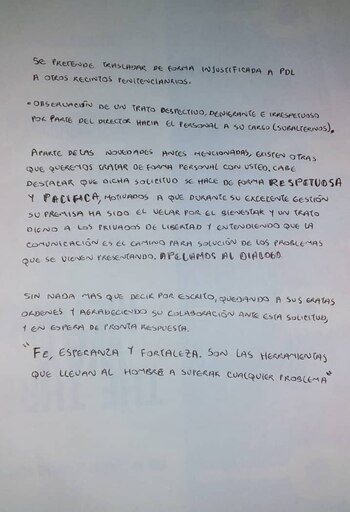 SE PRETENDE TRASLADAR DE FORMA INJUSTIFICADA A PDL
A OTROS RECINTOS PENITENCIARIOS.
• OBSERVACIÓN DE UN TRATO DESPECTIVO, DENIGRANTE E IRRESPETUOSO
POR PARTE DEL DIRECTOR HACIA EL PERSONAL A SU CARGO (SUBALTERNOS).
APARTE DE LAS NOVEDADES ANTES MENCIONADAS, EXISTEN OTRAS
QUE QUEREMOS TRATAR DE FORMA PERSONAL CON USTED, CABE
DESTACAR QUE DICHA SOLICITUD SE HACE DE FORMA RESPETUOSA
Y PACIFICA, MOTIVADOS A QUE DURANTE SU EXCELENTE GESTIÓN
SU PREMISA HA SIDO EL VELAR POR EL BIENESTAR Y UN TRATO
DIGNO A LOS PRIVADOS DE LIBERTAD Y ENTENDIENDO QUE LA
COMUNICACIÓN ES EL CAMINO PARA SOLUCIÓN DE LOS PROBLEMAS
QUE SE VIENEN PRESENTANDO. APELAMOS AL DIÁLOGO.
SIN NADA MAS QUE DECIR POR ESCRITO, QUEDANDO A SUS GRATAS
ORDENES Y AGRADECIENDO SU COLABORACIÓN ANTE ESTA SOLICITUD,
Y EN ESPERA DE PRONTA RESPUESTA.
"FE, ESPERANZA Y FORTALEZA. SON LAS HERRAMIENTAS
QUE LLEVAN AL HOMBRE A SUPERAR CUALQUIER PROBLEMA"